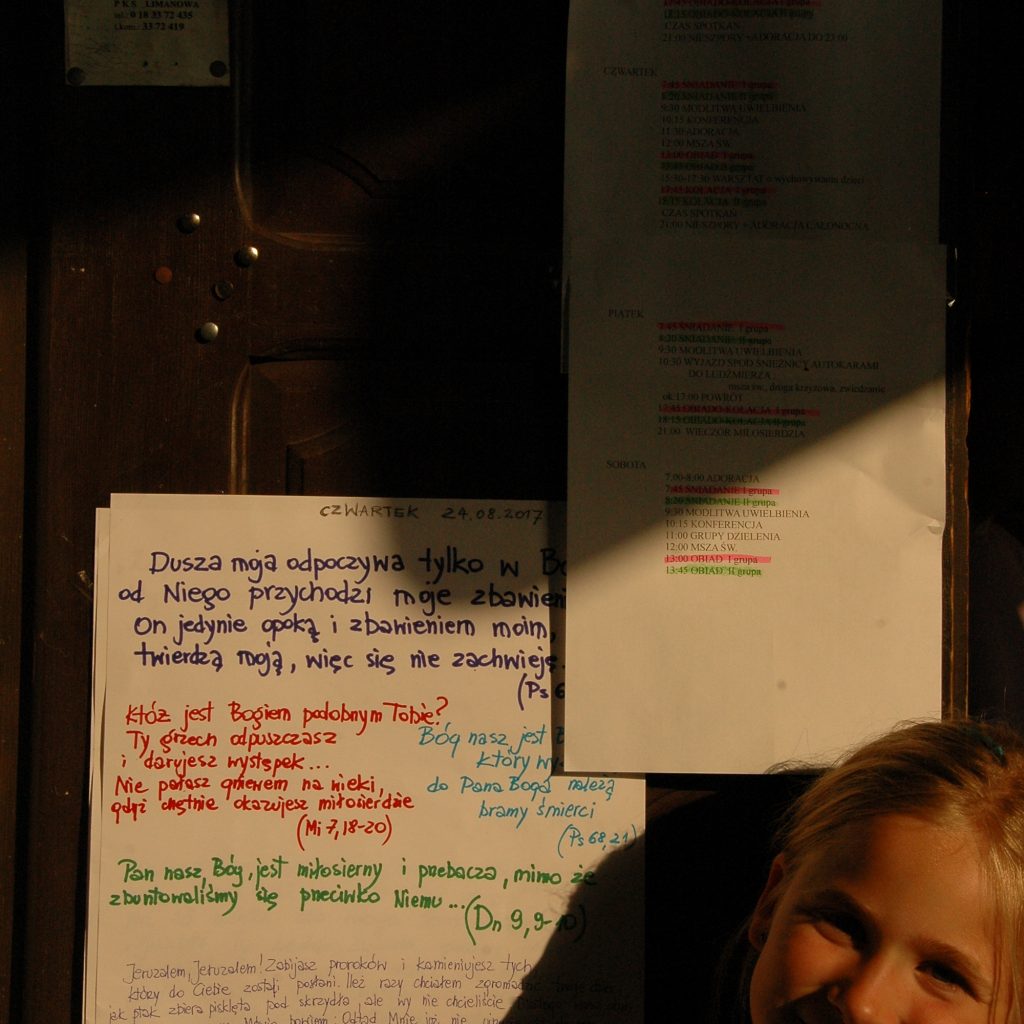 PKS LIMANOWA
tel.: 0 18 33 72 435
t.kom.: 33 72 419
21:00 NIESZPORY +ADORACJA DO 23:00
CZAS SPOTKAŃ
CZWARTEK
7:45 ŚNIADANIE I grupa
8:20 ŚNIADANIE II grupa
9:30 MODLITWA UWIELBIENIA
10:15 KONFERENCJA
11:30 ADORACJA
12:00 MSZA ŚW.
13:00 OBIAD I grupa
13:45 OBIAD II grupa
15:30-17:30 WARSZTAT o wychowywaniu dzieci
17:45 KOLACJA I grupa
18:15 KOLACJA II grupa
CZAS SPOTKAŃ
21:00 NIESZPORY + ADORACJA CAŁONOCNA
PIĄTEK
7:45 ŚNIADANIE I grupa
8:20 ŚNIADANIE II grupa
9:30 MODLITWA UWIELBIENIA
10:30 WYJAZD SPOD ŚNIEŻNICY AUTOKARAMI
DO LUDŹMIERZA
msza św., droga krzyżowa, zwiedzanie
ok.17:00 POWRÓT
17:45 OBIADO-KOLACJA I grupa
18:15 OBIADO-KOLACJA II grupa
21:00 WIECZÓR MIŁOSIERDZIA
SOBOTA
7.00-8.00 ADORACJA
7:45 ŚNIADANIE I grupa
8:20 ŚNIADANIE II grupa
9:30 MODLITWA UWIELBIENIA
10:15 KONFERENCJA
11:00 GRUPY DZIELENIA
12:00 MSZA ŚW.
13:00 OBIAD I grupa
13:45 OBIAD II grupa
CZWARTEK 24.08.2017
Dusza moja odpoczywa tylko w
od Niego przychodzi moje
On jedynie opoką i zbawieniem moim,
twierdzą moją, więc się nie zachwieję.
(Ps
Któż jest Bogiem podobnym Tobie?
Ty grzech odpuszczasz
i darujesz występek...
Nie pałasz gniewem na wieki,
gdyż chętnie okazujesz miłosierdzie
(Mi 7,18-20)
Bóg nasz jest
który
do Pana Boga należą
bramy śmierci
(Ps 68,21)
Pan nasz, Bóg, jest miłosierny i przebacza, mimo że
zbuntowaliśmy się przeciwko Niemu...
(Dn 9,9-10)
Jeruzalem, Jeruzalem! Zabijasz proroków i kamienujesz tych,
który do Ciebie zostali posłani. Ileż razy chciałem zgromadzić
jak ptak zbiera pisklęta pod skrzydła, ale wy nie chcieliście